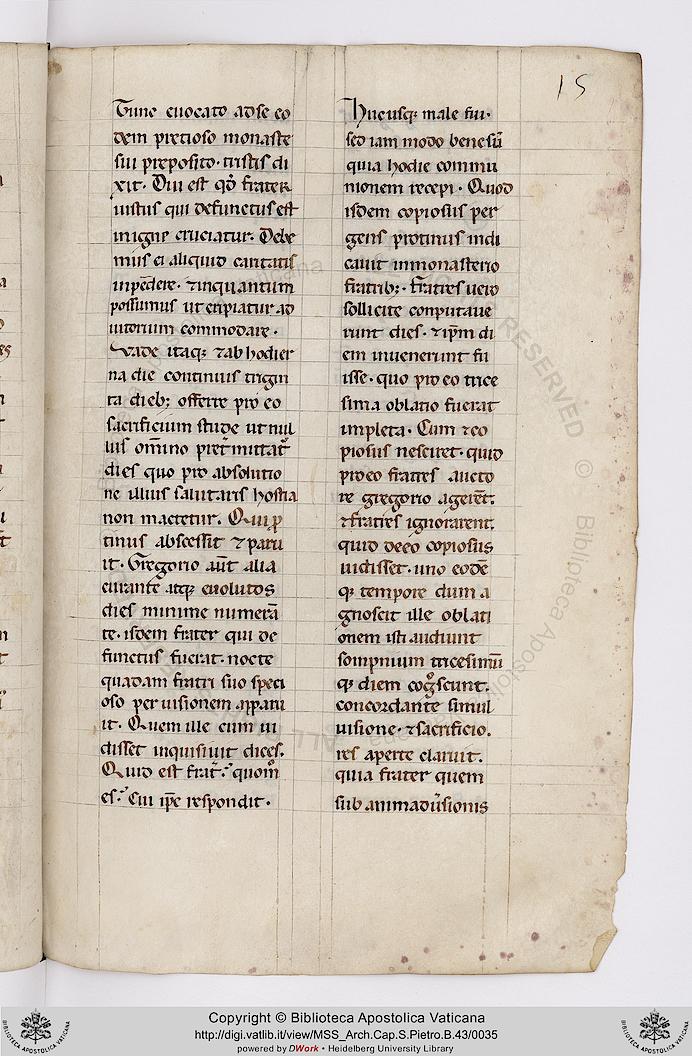 15
Tunc euocato adse eo
dem pretioso monaste
sui preposito· tristis di
xit· Diu est qđ frater
iustus qui defunctus est
inigne cruciatur. Debe
mus ei aliquid caritatis
inpēdere· ⁊inquantum
possumus ut eripiatur ad
iutorium commodare·
Vade itaq; ⁊ab hodier
na die continuis trigin
ta dieb; offerre pro eo
sacrificium stude ut nul
lus om̄ino pret̄mittat᷒
dies quo pro absolutio
ne illius salutaris hostia
non mactetur. Qui ꝓ
tinus abscessit ⁊ paru
it· Gregorio aūt alia
curante atq; euolutos
dies minime numerā
te· isdem frater qui de
functus fuerat· nocte
quadam fratri suo speci
oso per uisionem apparu
it· Quem ille cum ui
disset inquisiuit dicēs.
Quid est frat̄· quom̊
es· Cui ip̄e respondit·
Hucusq; male fui·
sed iam modo bene sū
quia hodie commu
nionem recepi· Quod
isdem copiosus per
gens protinus indi
cauit inmonasterio
fratrib;· Fratres uero
sollicite conputaue
runt dies· ⁊ip̄m di
em inuenerunt fu
isse· quo pro eo trice
sima oblatio fuerat
impleta· Cum ⁊co
piosus nesciret· quid
proeo fratres aucto
re gregorio agerēt·
⁊fratres ignorarent·
quid deeo copiosus
uidisset· uno eodē
q; tempore dum a
gnoscit ille oblati
onem isti audiunt
sompnium tricesimū
q; diem cog̊scunt·
concordante simul
uisione· ⁊sacrificio·
res aperte claruit·
quia frater quem
sub animadūsionis
Copyright © Biblioteca Apostolica Vaticana
http://digi.vatlib.it/view/MSS_Arch.Cap.S.Pietro.B.43/0035
powered by DWork · Heidelberg University Library